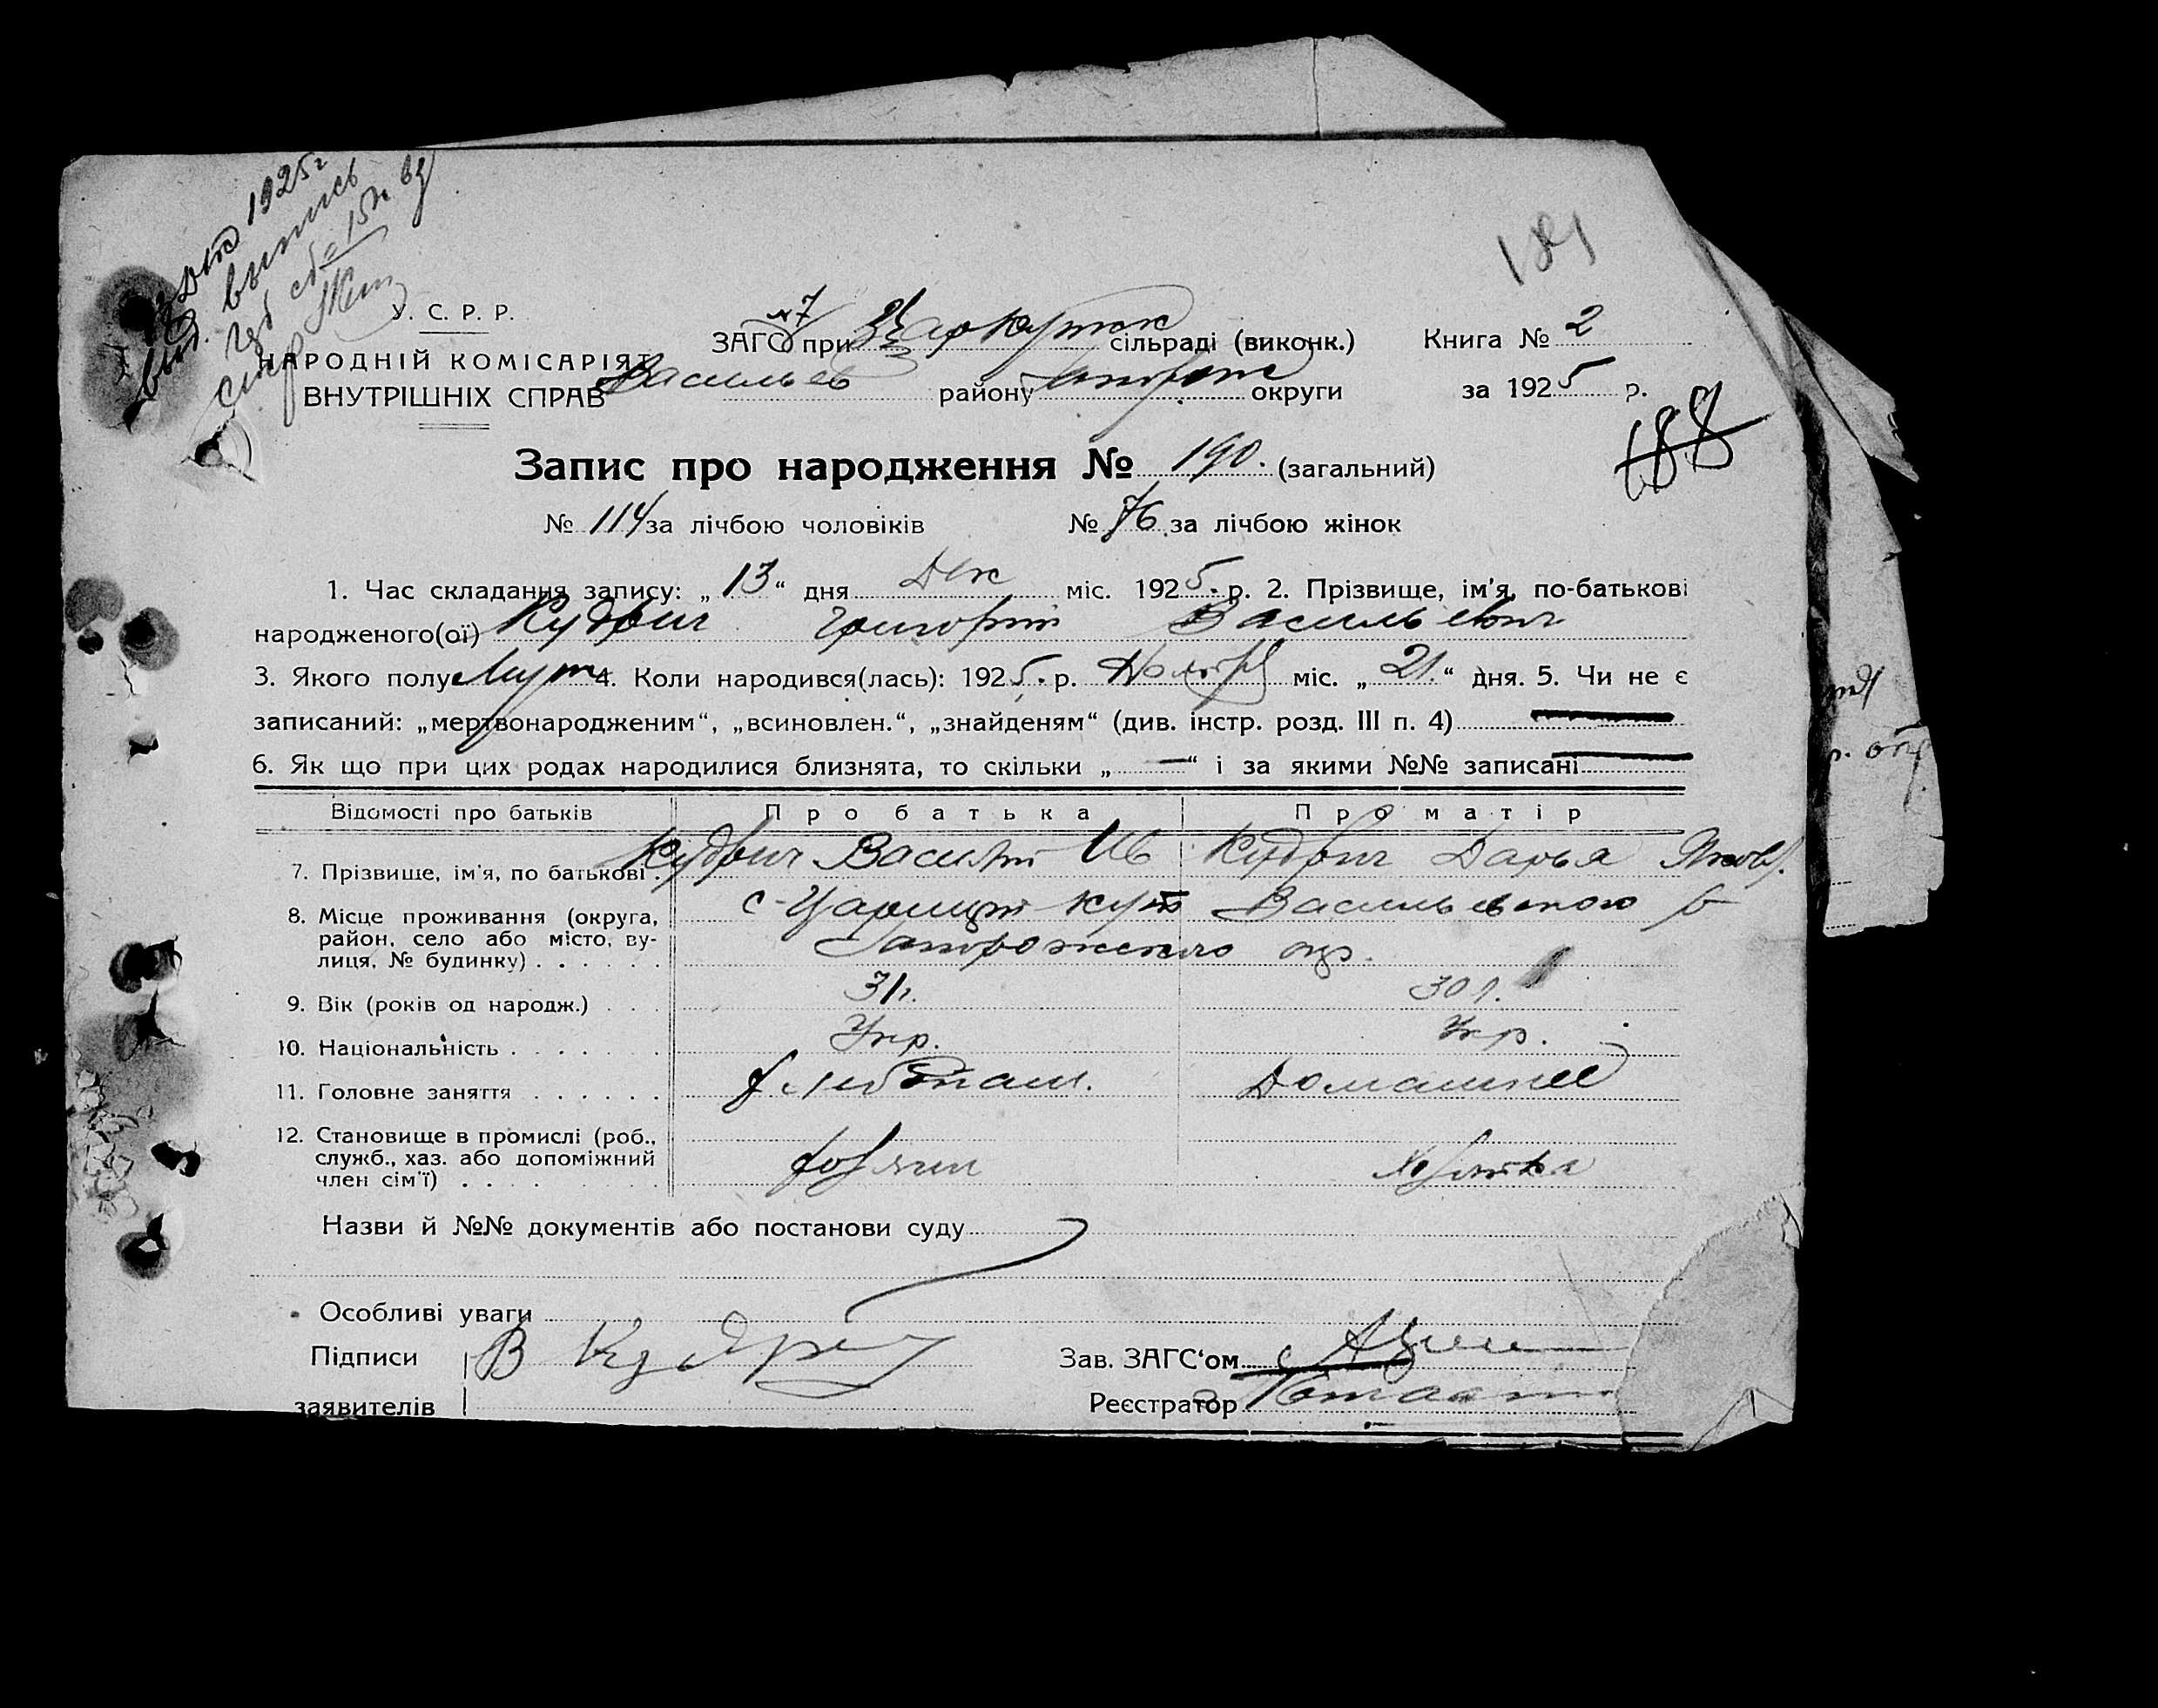 1925г
выпись
У. С. Р. Р.
НАРОДНІЙ КОМІСАРІЯТ
ВНУТРІШНІХ СПРАВ
ЗАГС при Царкутск сільраді (виконк.)
Васильев району округи
Книга № 2
за 1925 р.
188
Запис про народження № 190. (загальний)
№ 114 за лічбою чоловіків № 76 за лічбою жінок
1. Час складання запису: „13“ дня Дек міс. 1925 р. 2. Прізвище, ім'я, по-батькові
народженого(ої) Кудрич Григорій Васильевич
3. Якого полу Муж 4. Коли народився(лась): 1925. р. Ноября міс. „21.“ дня. 5. Чи не є
записаний: „мертвонародженим“, „всиновлен.“, „знайденям“ (див. інстр. розд. III п. 4) —
6. Як що при цих родах народилися близнята, то скільки „—“ і за якими №№ записані —
Відомості про батьків Про батька Про матір
7. Прізвище, ім'я, по батькові. Кудрич Василий Ив Кудрич Дарья Яковл.
8. Місце проживання (округа, район, село або місто, вулиця, № будинку) с-Царицын кут Васильевского р
Запорожского окр.
9. Вік (років од народж.) 31г. 30г.
10. Національність Укр. Укр.
11. Головне заняття Хлебопаш. Домашнее
12. Становище в промислі (роб., служб., хаз. або допоміжний член сім'ї) хозяин хозяйка
Назви й №№ документів або постанови суду
Особливі уваги
Підписи В Кудрич
заявителів
Зав. ЗАГС'ом
Реєстратор